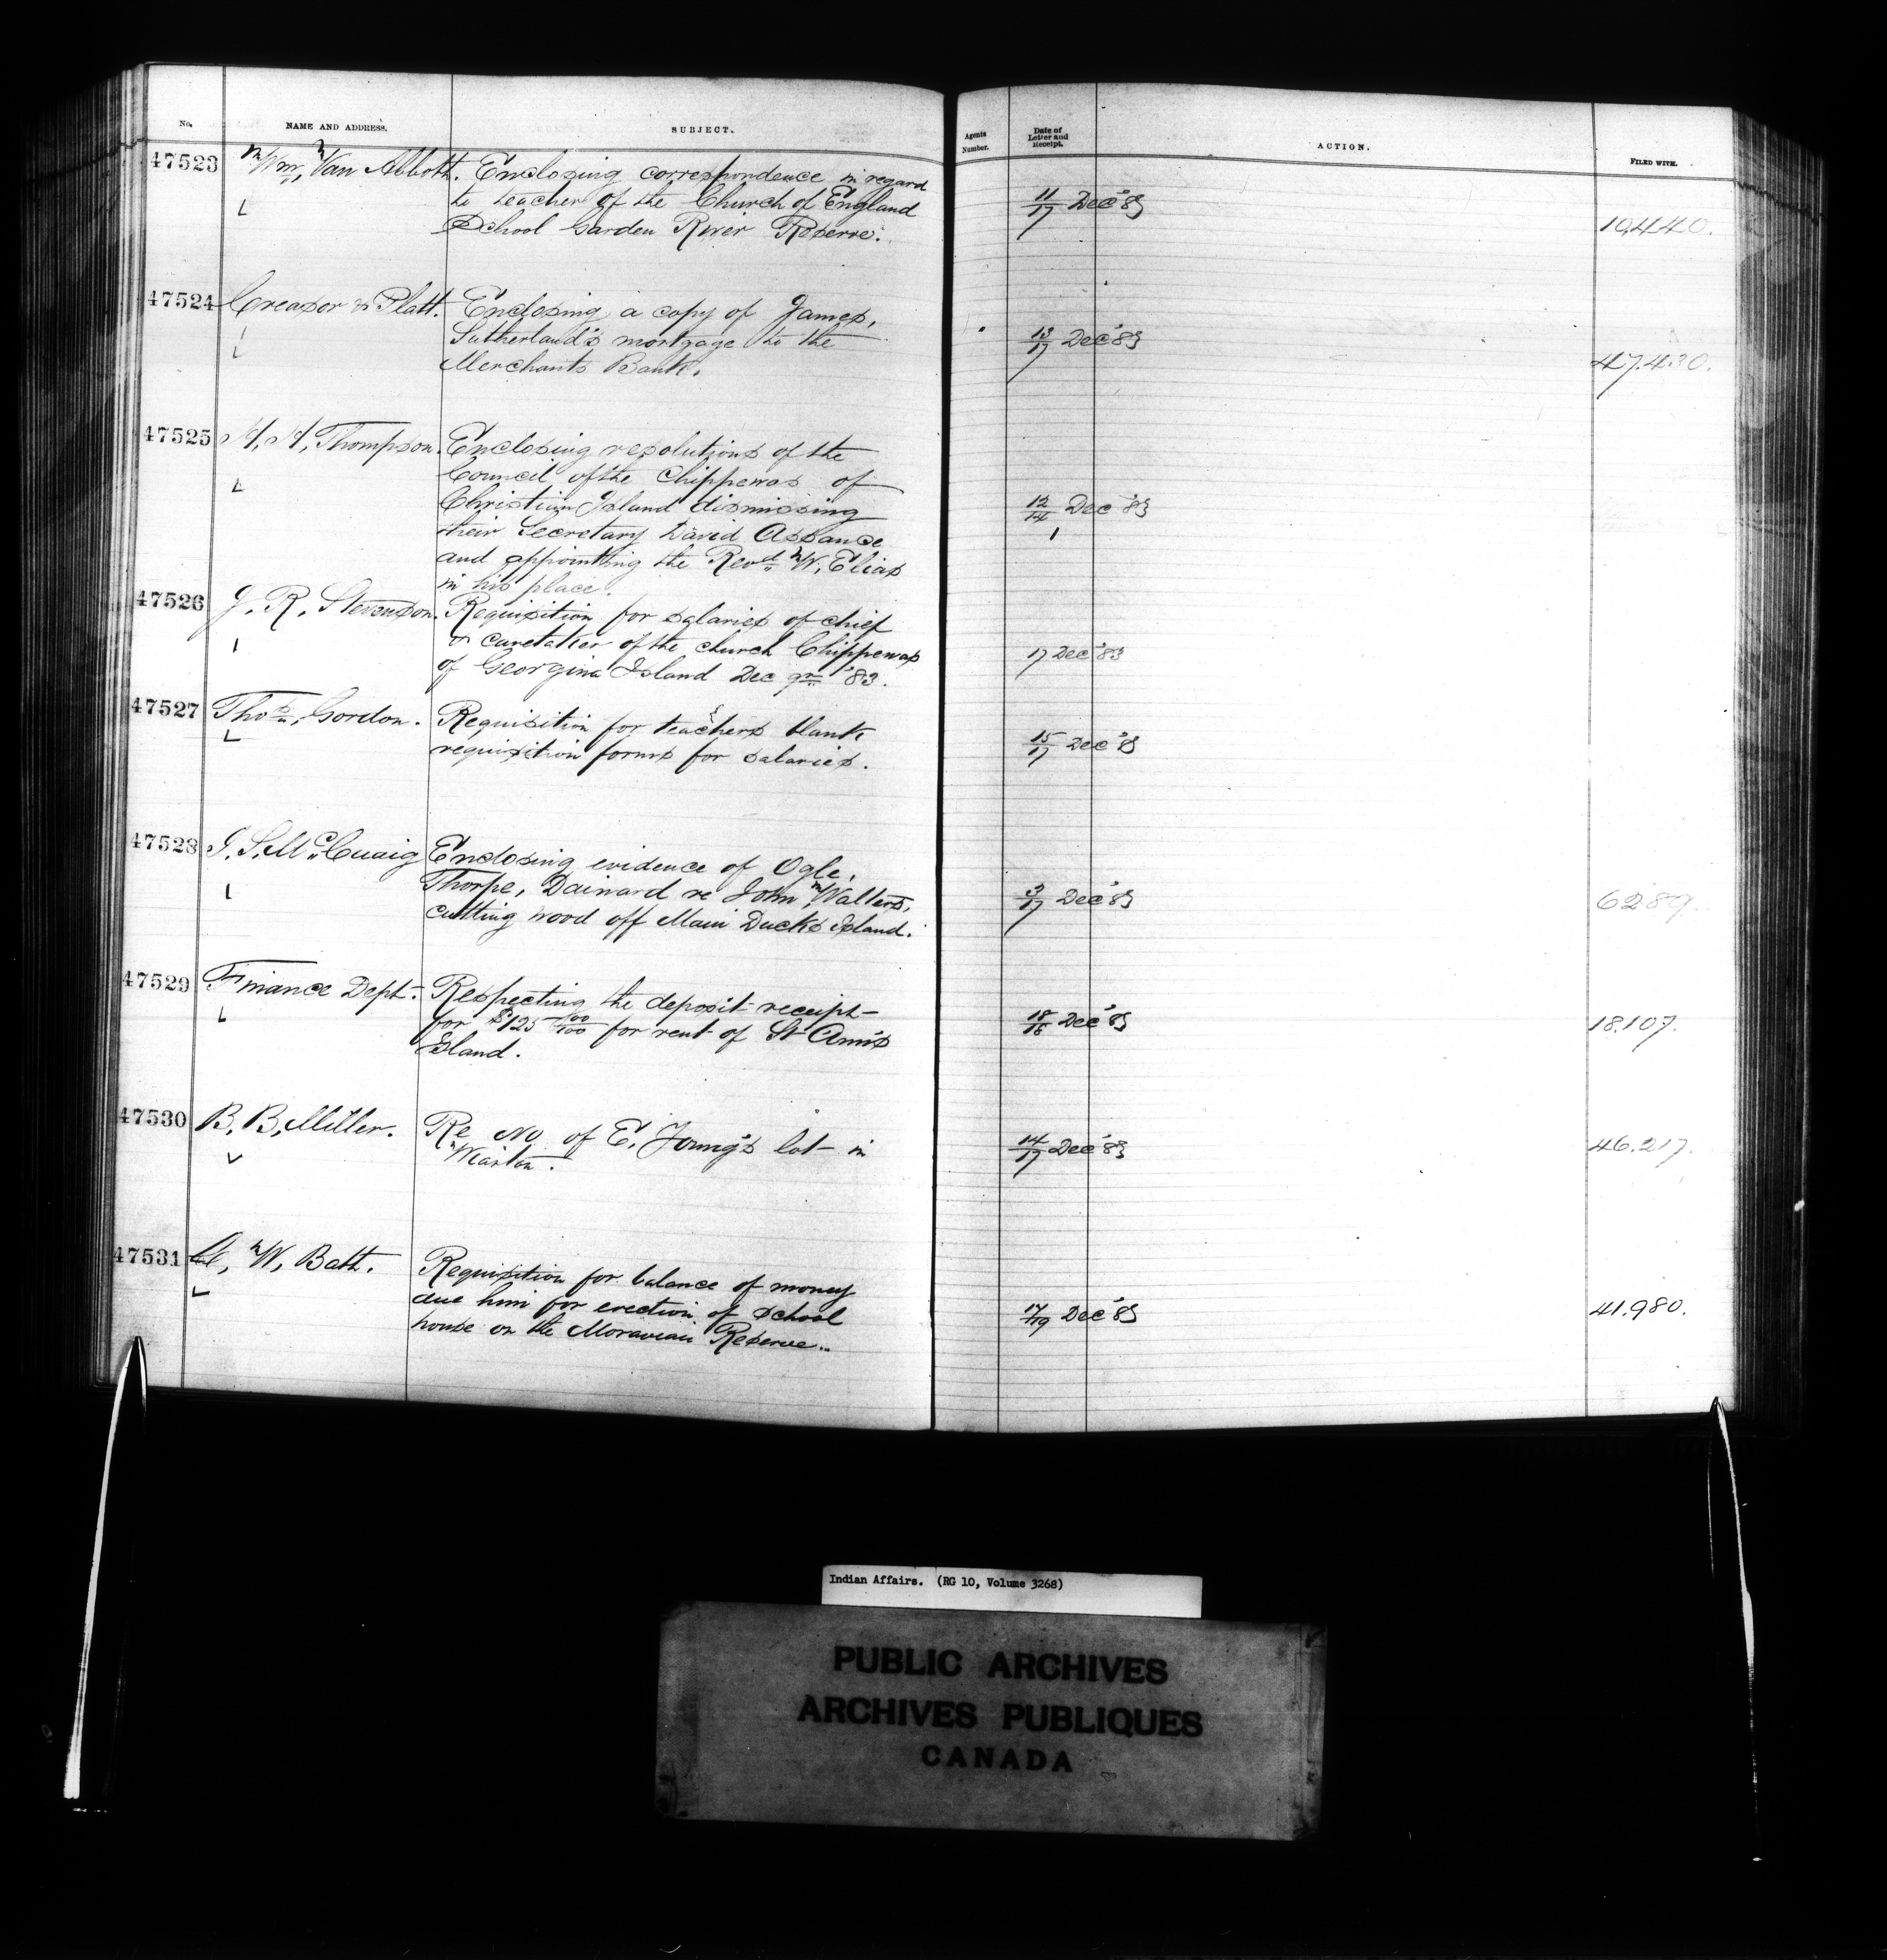 No. NAME AND ADDRESS. SUBJECT. Agents Number. Date of Letter and Receipt. ACTION. FILED WITH.
47523 Wm. Van Abbott. Enclosing correspondence in regard
to teacher of the Church of England
School Garden River Reserve.
11/17 Dec '83
19,440.
47524 Creasor & Platt. Enclosing a copy of James,
Sutherland's mortgage to the
Merchants Bank.
13/17 Dec '83
47.430.
47525 H. H. Thompson. Enclosing resolutions of the
Council of the Chippewas of
Christian Island dismissing
their Secretary David Assance
and appointing the Revd. W. Elias
in his place.
12/14 Dec '83
47526 J. R. Stevenson. Requisition for salaries of chief
& caretaker of the church Chippewas
of Georgina Island Dec qr. '83.
17 Dec '83
47527 Thos. Gordon. Requisition for teachers blank
requisition forms for salaries.
15/17 Dec '83
47528 J. S. McCuaig Enclosing evidence of Ogle,
Thorpe, Dainard re John Walters,
cutting wood off Main Ducks Island.
3/17 Dec '83
6289.
47529 Finance Dept. Respecting the deposit receipt
for $125 00/100 for rent of St Ann's
Island.
18/18 Dec '83
18.107.
47530 B. B. Miller. Re No of E. Young's lot in
Wiarton.
14/17 Dec '83
46.217.
47531 W. Bath. Requisition for balance of money
due him for erection of School
house on the Moravian Reserve.
17/19 Dec '83
41.980.
Indian Affairs. (RG 10, Volume 3268)
PUBLIC ARCHIVES
ARCHIVES PUBLIQUES
CANADA